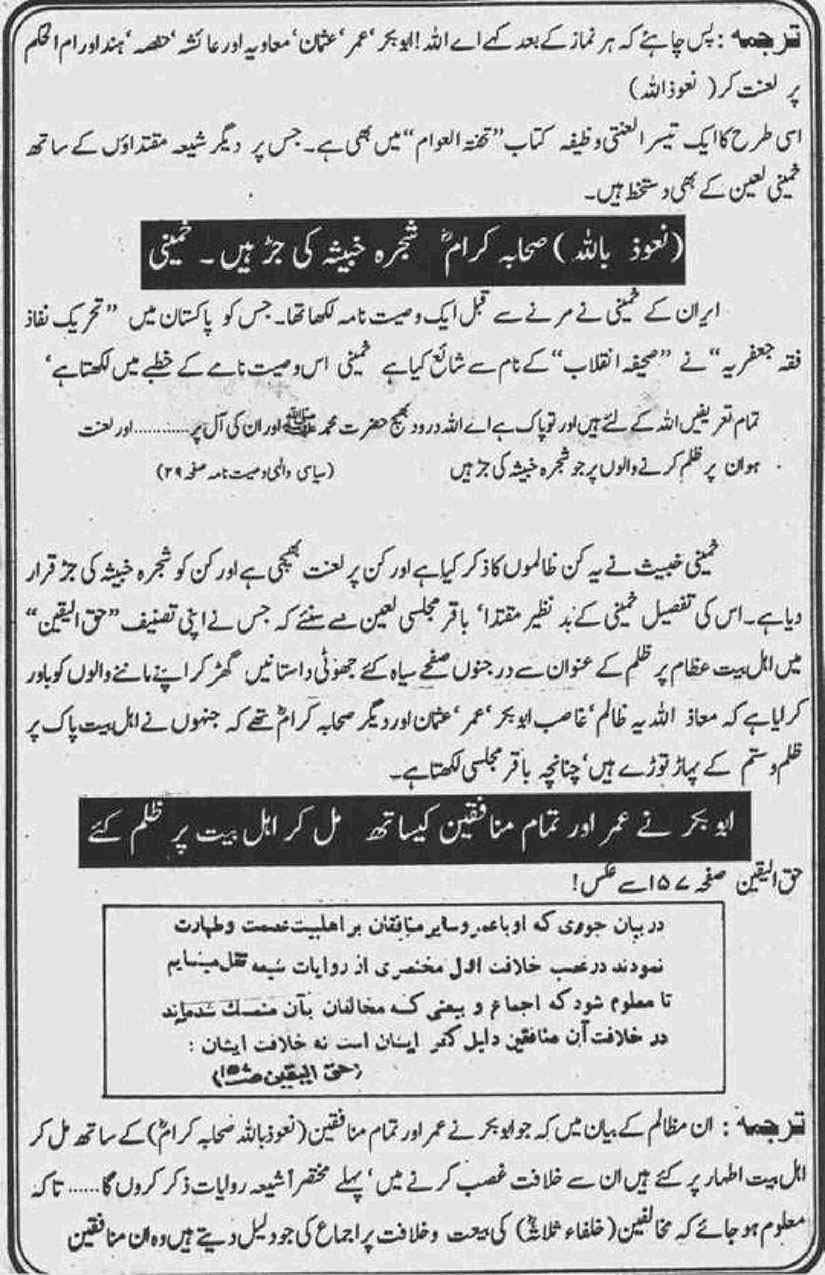 ترجمہ : پس چاہئے کہ ہر نماز کے بعد کہے اے اللہ ! ابوبکر‘ عمر‘ عثمان‘ معاویہ اور عائشہ‘ حفصہ‘ ہند اور ام الحکم
پر لعنت کر ( نعوذ اللہ )
اسی طرح کا ایک تیسرا لعنتی وظیفہ کتاب ”تحفۃ العوام“ میں بھی ہے۔ جس پر دیگر شیعہ مقتداؤں کے ساتھ
خمینی لعین کے بھی دستخط ہیں۔
(نعوذ باللہ ) صحابہ کرامؓ شجرہ خبیثہ کی جڑ ہیں ۔ خمینی
ایران کے خمینی نے مرنے سے قبل ایک وصیت نامہ لکھا تھا۔ جس کو پاکستان میں ”تحریک نفاذ
فقہ جعفریہ“ نے ”صحیفہ انقلاب“ کے نام سے شائع کیا ہے خمینی اس وصیت نامے کے خطبے میں لکھتا ہے‘
تمام تعریفیں اللہ کے لئے ہیں اور تو پاک ہے اے اللہ درود بھیج حضرت محمد ﷺ اور ان کی آل پر............اور لعنت
ہو ان پر ظلم کرنے والوں پر جو شجرہ خبیثہ کی جڑ ہیں (سیاسی والٰہی وصیت نامہ صفحہ ۲۹)
خمینی خبیث نے یہ کن ظالموں کا ذکر کیا ہے اور کن پر لعنت بھیجی ہے اور کن کو شجرہ خبیثہ کی جڑ قرار
دیا ہے۔ اس کی تفصیل خمینی کے بد نظیر مقتدا‘ باقر مجلسی لعین سے سنئے کہ جس نے اپنی تصنیف ”حق الیقین“
میں اہل بیت عظام پر ظلم کے عنوان سے درجنوں صفحے سیاہ کئے جھوٹی داستانیں گھڑ کر اپنے ماننے والوں کو باور
کرایا ہے کہ معاذ اللہ یہ ظالم‘ غاصب ابوبکر‘ عمر‘ عثمان اور دیگر صحابہ کرامؓ تھے کہ جنہوں نے اہل بیت پاک پر
ظلم و ستم کے پہاڑ توڑے ہیں‘ چنانچہ باقر مجلسی لکھتا ہے۔
ابو بکر نے عمر اور تمام منافقین کیساتھ مل کر اہل بیت پر ظلم کئے
حق الیقین صفحہ ۱۵۷ سے عکس!
در بیان جوری که او باعمر و سایر منافقان بر اهلبیت عصمت و طهارت
نمودند در غصب خلافت اول مختصری از روایات شیعه نقل مینمایم
تا معلوم شود که اجماع و بیعتی که مخالفان بآن متمسک شده‌اند
در خلافت آن منافقین دلیل کفر ایشان است نه خلافت ایشان :
(حق الیقین ص۱۵۷)
ترجمہ : ان مظالم کے بیان میں کہ جو ابوبکر نے عمر اور تمام منافقین (نعوذ باللہ صحابہ کرامؓ) کے ساتھ مل کر
اہل بیت اطہار پر کئے ہیں ان سے خلافت غصب کرنے میں‘ پہلے مختصراً شیعہ روایات ذکر کروں گا...... تاکہ
معلوم ہو جائے کہ مخالفین (خلفاء ثلاثہؓ) کی بیعت و خلافت پر اجماع کی جو دلیل دیتے ہیں وہ ان منافقین